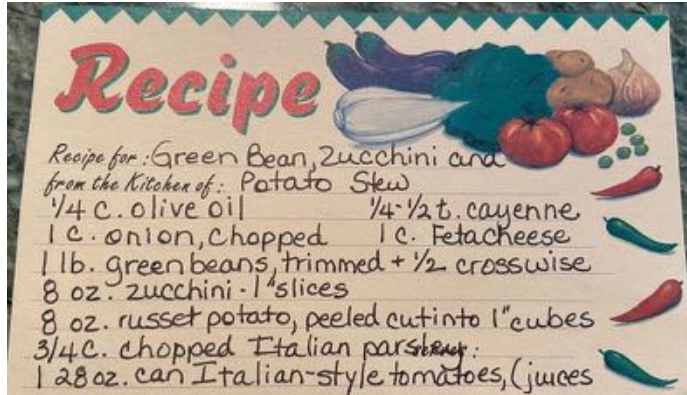 Recipe
Recipe for: Green Bean, Zucchini and
from the Kitchen of: Potato Stew
1/4 c. olive oil 1/4-1/2 t. cayenne
1 c. onion, chopped 1 c. Feta cheese
1 lb. green beans, trimmed + 1/2 crosswise
8 oz. zucchini - 1" slices
8 oz. russet potato, peeled cut into 1" cubes
3/4 c. chopped Italian parsley
1 28 oz. can Italian-style tomatoes, (juices